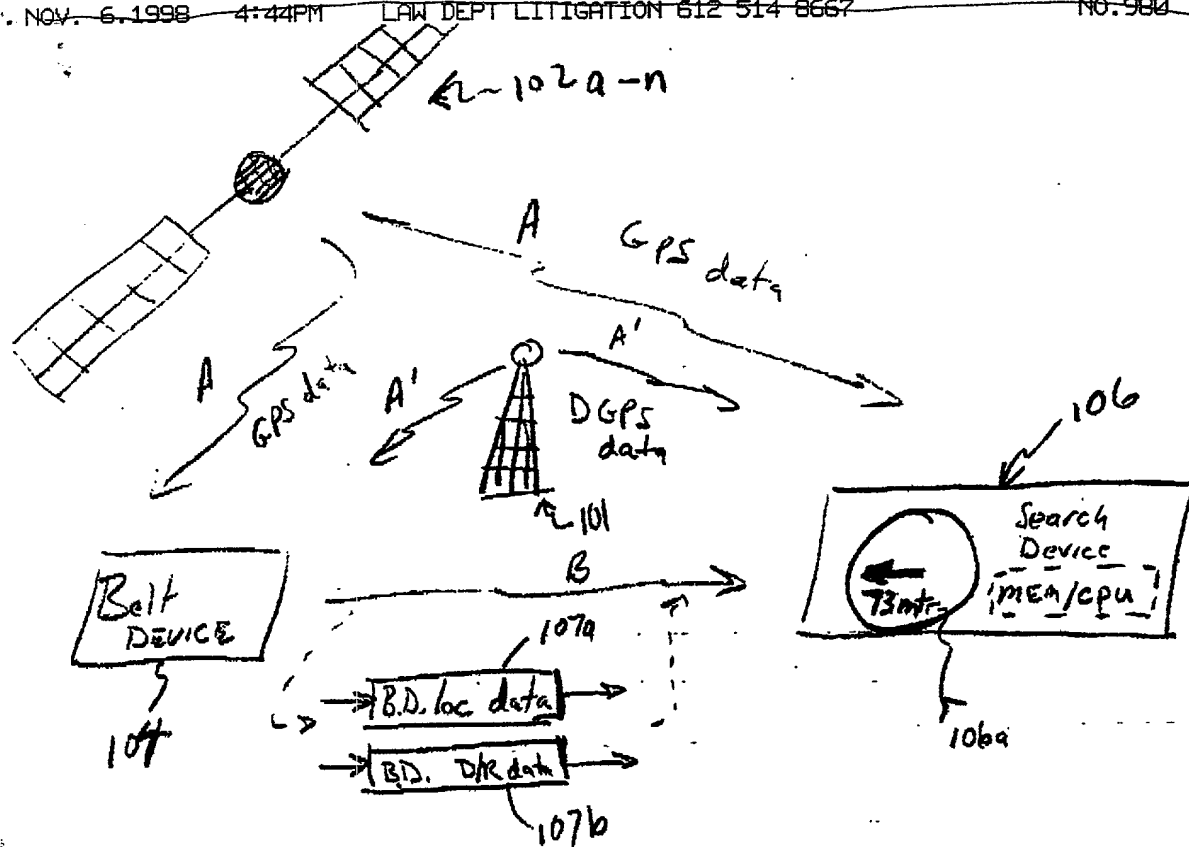 . NOV. 6.1998 4:44PM LAW DEPT LITIGATION 612 514 8667 NO.980
102a-n
A
GPS data
A
GPS data
A'
A'
DGPS
data
101
106
Search
Device
MEM/CPU
73mtr
106a
Belt
DEVICE
104
B
107a
B.D. loc data
B.D. D/R data
107b